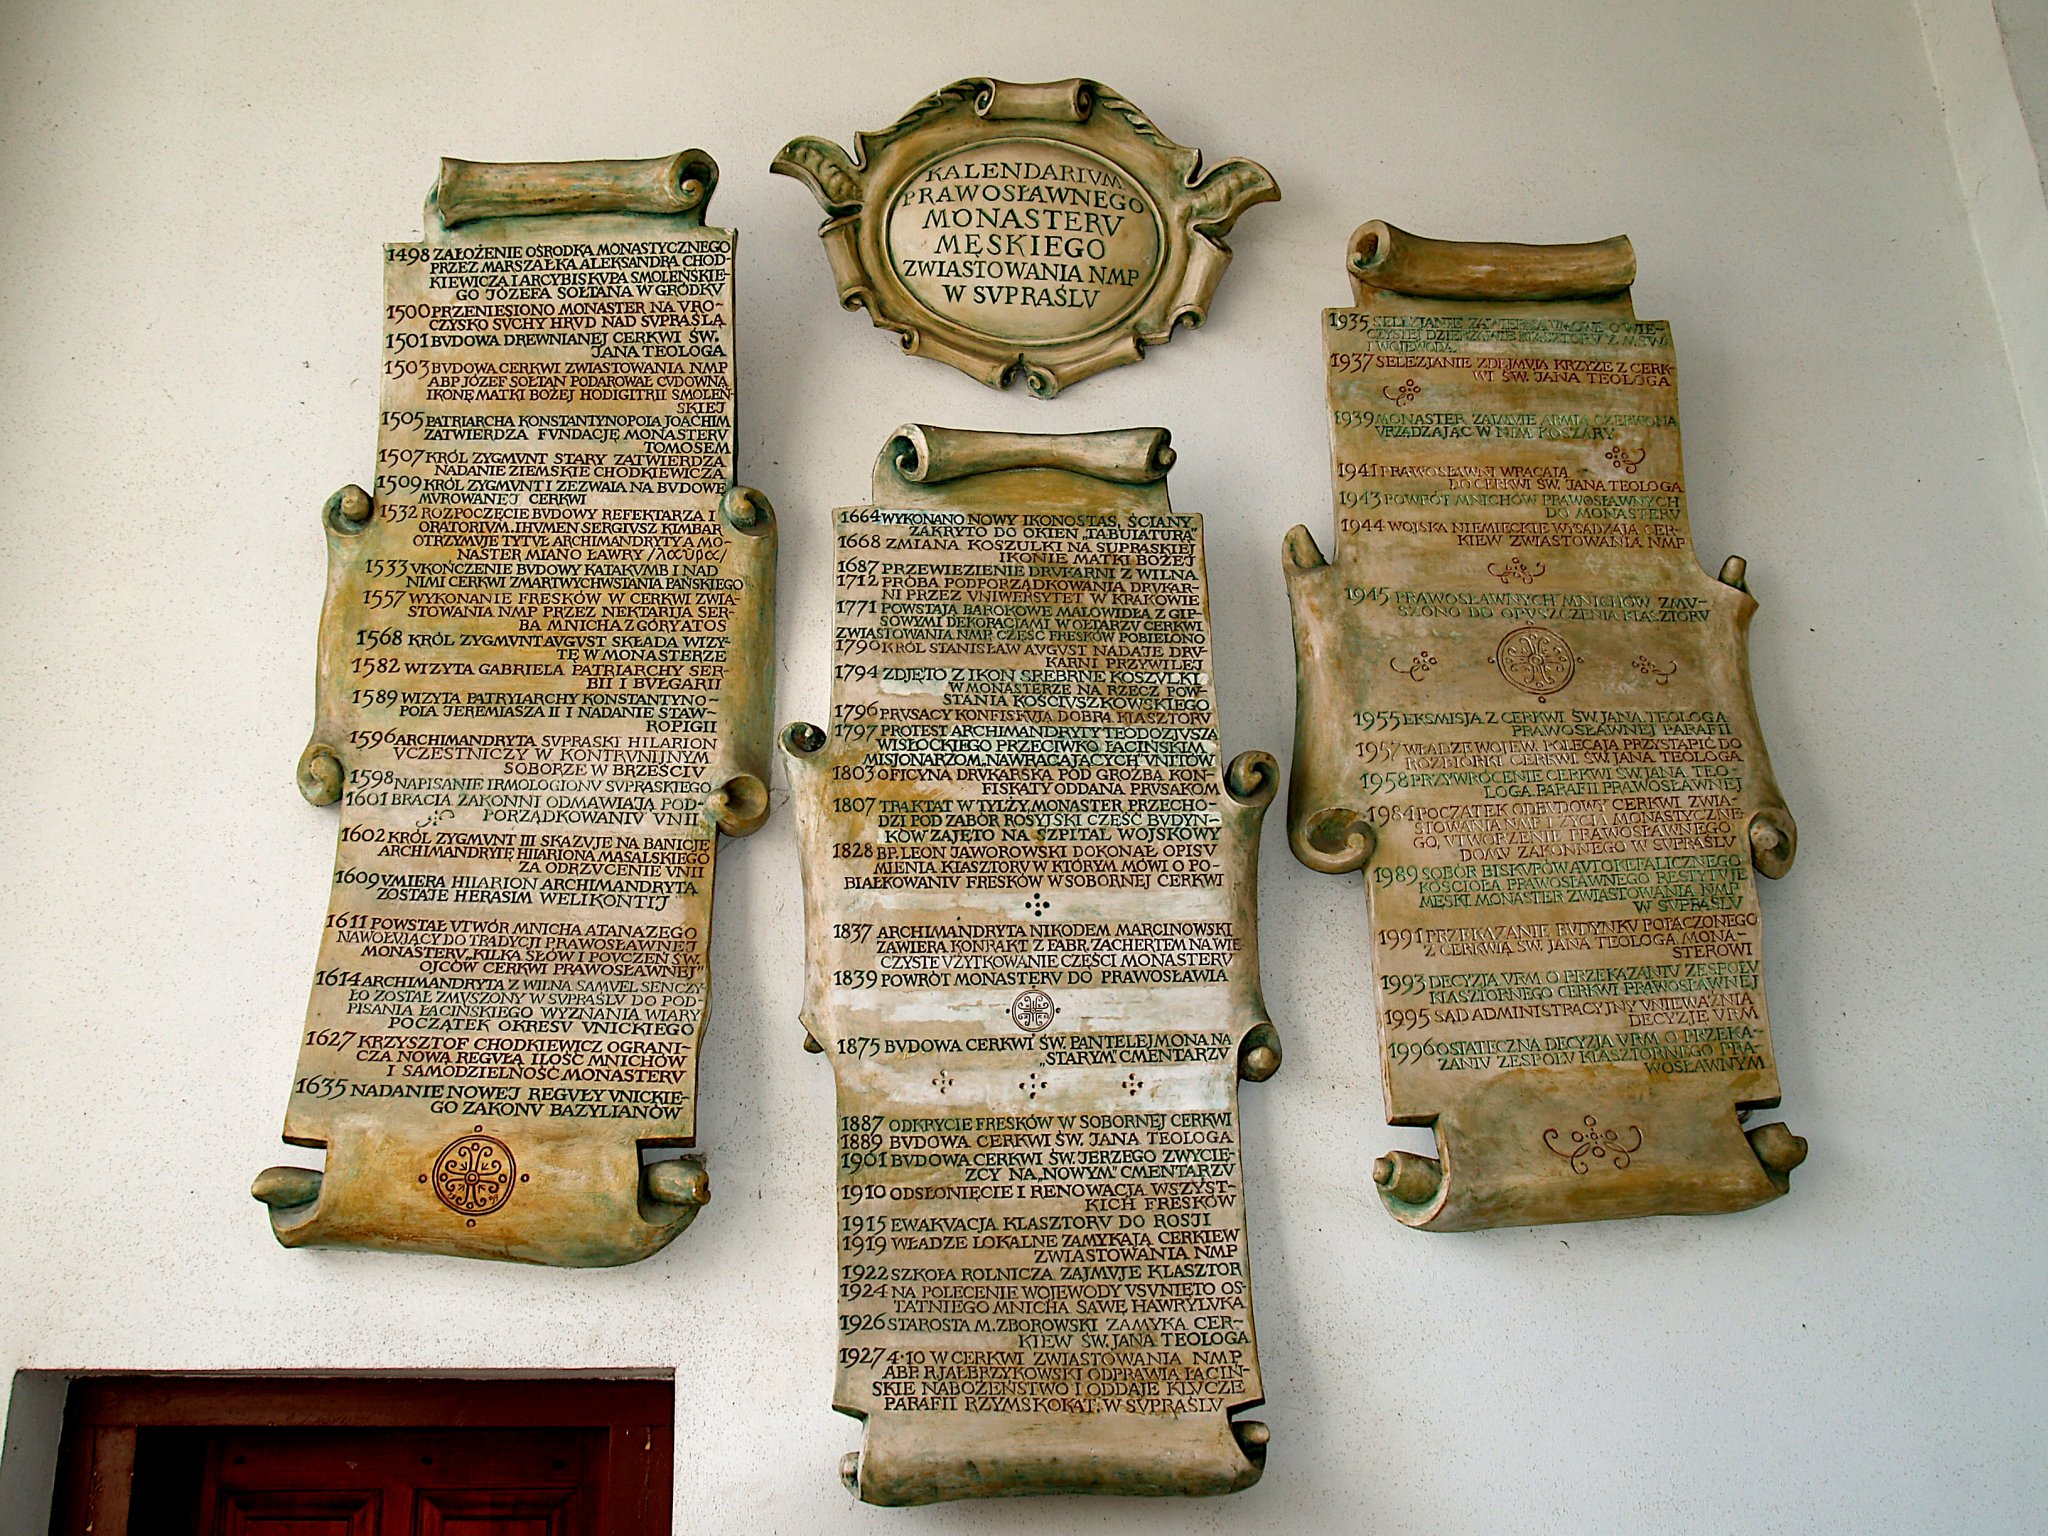 KALENDARIVM
PRAWOSŁAWNEGO
MONASTERV
MĘSKIEGO
ZWIASTOWANIA NMP
W SVPRAŚLV
1498 ZAŁOŻENIE OŚRODKA MONASTYCZNEGO
PRZEZ MARSZAŁKA ALEKSANDRA CHOD-
KIEWICZA I ARCYBISKVPA SMOLEŃSKIE-
GO JÓZEFA SOŁTANA W GRÓDKV
1500 PRZENIESIONO MONASTER NA VRO-
CZYSKO SVCHY HRVD NAD SVPRAŚLĄ
1501 BVDOWA DREWNIANEJ CERKWI ŚW.
JANA TEOLOGA
1503 BVDOWA CERKWI ZWIASTOWANIA NMP
ABP JÓZEF SOŁTAN PODAROWAŁ CVDOWNĄ
IKONĘ MATKI BOŻEJ HODIGITRII SMOLEŃ-
SKIEJ
1505 PATRIARCHA KONSTANTYNOPOLA JOACHIM
ZATWIERDZA FVNDACJĘ MONASTERV
TOMOSEM
1507 KRÓL ZYGMVNT STARY ZATWIERDZA
NADANIE ZIEMSKIE CHODKIEWICZA
1509 KRÓL ZYGMVNT I ZEZWALA NA BVDOWĘ
MVROWANEJ CERKWI
1532 ROZPOCZĘCIE BVDOWY REFEKTARZA I
ORATORIVM. IHVMEN SERGIVSZ KIMBAR
OTRZYMVJE TYTVŁ ARCHIMANDRYTY A MO-
NASTER MIANO ŁAWRY /λαύρα/
1533 VKOŃCZENIE BVDOWY KATAKVMB I NAD
NIMI CERKWI ZMARTWYCHWSTANIA PAŃSKIEGO
1557 WYKONANIE FRESKÓW W CERKWI ZWIA-
STOWANIA NMP PRZEZ NEKTARIJA SER-
BA MNICHA Z GÓRY ATOS
1568 KRÓL ZYGMVNT AVGVST SKŁADA WIZY-
TĘ W MONASTERZE
1582 WIZYTA GABRIELA PATRIARCHY SER-
BII I BVŁGARII
1589 WIZYTA PATRYIARCHY KONSTANTYNO-
POLA JEREMIASZA II I NADANIE STAW-
ROPIGII
1596 ARCHIMANDRYTA SVPRASKI HILARION
VCZESTNICZY W KONTRVNIJNYM
SOBORZE W BRZEŚCIV
1598 NAPISANIE IRMOLOGIONV SVPRASKIEGO
1601 BRACIA ZAKONNI ODMAWIAJĄ POD-
PORZĄDKOWANIV VNII
1602 KRÓL ZYGMVNT III SKAZVJE NA BANICJĘ
ARCHIMANDRYTĘ HILARIONA MASALSKIEGO
ZA ODRZVCENIE VNII
1609 VMIERA HILARION ARCHIMANDRYTĄ
ZOSTAJE HERASIM WELIKONTIJ
1611 POWSTAŁ VTWÓR MNICHA ATANAZEGO
NAWOŁVJĄCY DO TRADYCJI PRAWOSŁAWNEJ
MONASTERV „KILKA SŁÓW I POVCZEŃ ŚW.
OJCÓW CERKWI PRAWOSŁAWNEJ”
1614 ARCHIMANDRYTA Z WILNA SAMVEL SENCZY-
ŁO ZOSTAŁ ZMVSZONY W SVPRAŚLV DO POD-
PISANIA ŁACIŃSKIEGO WYZNANIA WIARY
POCZĄTEK OKRESV VNICKIEGO
1627 KRZYSZTOF CHODKIEWICZ OGRANI-
CZA NOWĄ REGVŁĄ ILOŚĆ MNICHÓW
I SAMODZIELNOŚĆ MONASTERV
1635 NADANIE NOWEJ REGVŁY VNICKIE-
GO ZAKONV BAZYLIANÓW
1664 WYKONANO NOWY IKONOSTAS, ŚCIANY
ZAKRYTO DO OKIEN „TABULATURĄ”
1668 ZMIANA KOSZULKI NA SUPRASKIEJ
IKONIE MATKI BOŻEJ
1687 PRZEWIEZIENIE DRVKARNI Z WILNA
1712 PRÓBA PODPORZĄDKOWANIA DRVKAR-
NI PRZEZ VNIWERSYTET W KRAKOWIE
1771 POWSTAJĄ BAROKOWE MALOWIDŁA Z GIP-
SOWYMI DEKORACJAMI W OŁTARZV CERKWI
ZWIASTOWANIA NMP. CZĘŚĆ FRESKÓW POBIELONO
1790 KRÓL STANISŁAW AVGVST NADAJE DRV-
KARNI PRZYWILEJ
1794 ZDJĘTO Z IKON SREBRNE KOSZVLKI
W MONASTERZE NA RZECZ POW-
STANIA KOŚCIVSZKOWSKIEGO
1796 PRVSACY KONFISKVJĄ DOBRA KLASZTORV
1797 PROTEST ARCHIMANDRYTY TEODOZJVSZA
WISŁOCKIEGO PRZECIWKO ŁACIŃSKIM
MISJONARZOM „NAWRACAJĄCYCH” VNITÓW
1803 OFICYNA DRVKARSKA POD GROŹBĄ KON-
FISKATY ODDANA PRVSAKOM
1807 TRAKTAT W TYLŻY. MONASTER PRZECHO-
DZI POD ZABÓR ROSYJSKI CZĘŚĆ BVDYN-
KÓW ZAJĘTO NA SZPITAL WOJSKOWY
1828 BP. LEON JAWOROWSKI DOKONAŁ OPISV
MIENIA KLASZTORV W KTÓRYM MÓWI O PO-
BIAŁKOWANIV FRESKÓW W SOBORNEJ CERKWI
1837 ARCHIMANDRYTA NIKODEM MARCINOWSKI
ZAWIERA KONRAKT Z FABR. ZACHERTEM NA WIE
CZYSTE VŻYTKOWANIE CZĘŚCI MONASTERV
1839 POWRÓT MONASTERV DO PRAWOSŁAWIA
1875 BVDOWA CERKWI ŚW. PANTELEJMONA NA
„STARYM” CMENTARZV
1887 ODKRYCIE FRESKÓW W SOBORNEJ CERKWI
1889 BVDOWA CERKWI ŚW. JANA TEOLOGA
1901 BVDOWA CERKWI ŚW. JERZEGO ZWYCIĘ-
ZCY NA „NOWYM” CMENTARZV
1910 ODSŁONIĘCIE I RENOWACJA WSZYST-
KICH FRESKÓW
1915 EWAKVACJA KLASZTORV DO ROSJI
1919 WŁADZE LOKALNE ZAMYKAJĄ CERKIEW
ZWIASTOWANIA NMP
1922 SZKOŁA ROLNICZA ZAJMVJE KLASZTOR
1924 NA POLECENIE WOJEWODY VSVNIĘTO OS-
TATNIEGO MNICHA SAWĘ HAWRYLVKA
1926 STAROSTA M. ZBOROWSKI ZAMYKA CER-
KIEW ŚW. JANA TEOLOGA
1927 4·10 W CERKWI ZWIASTOWANIA NMP
ABP. R. JAŁBRZYKOWSKI ODPRAWIA ŁACIŃ-
SKIE NABOŻEŃSTWO I ODDAJE KLVCZE
PARAFII RZYMSKOKAT. W SVPRAŚLV
1935 SELEZJANIE ZAWIERAJĄ VMOWĘ O WIE-
CZYSTEJ DZIERŻAWIE KLASZTORV Z MSW
I WOJEWODĄ
1937 SELEZJANIE ZDEJMVJĄ KRZYŻE Z CERK-
WI ŚW. JANA TEOLOGA
1939 MONASTER ZAJMVJE ARMIA CZERWONA
VRZĄDZAJĄC W NIM KOSZARY
1941 PRAWOSŁAWNI WRACAJĄ
DO CERKWI ŚW. JANA TEOLOGA
1943 POWRÓT MNICHÓW PRAWOSŁAWNYCH
DO MONASTERV
1944 WOJSKA NIEMIECKIE WYSADZAJĄ CER-
KIEW ZWIASTOWANIA NMP
1945 PRAWOSŁAWNYCH MNICHÓW ZMV-
SZONO DO OPVSZCZENIA KLASZTORV
1955 EKSMISJA Z CERKWI ŚW. JANA TEOLOGA
PRAWOSŁAWNEJ PARAFII
1957 WŁADZE WOJEW. POLECAJĄ PRZYSTĄPIĆ DO
ROZBIÓRKI CERKWI ŚW. JANA TEOLOGA
1958 PRZYWRÓCENIE CERKWI ŚW. JANA TEO-
LOGA PARAFII PRAWOSŁAWNEJ
1984 POCZĄTEK ODBVDOWY CERKWI ZWIA-
STOWANIA NMP I ŻYCIA MONASTYCZNE-
GO, VTWORZENIE PRAWOSŁAWNEGO
DOMV ZAKONNEGO W SVPRAŚLV
1989 SOBÓR BISKVPÓW AVTOKEFALICZNEGO
KOŚCIOŁA PRAWOSŁAWNEGO RESTYTVJE
MĘSKI MONASTER ZWIASTOWANIA NMP
W SVPRAŚLV
1991 PRZEKAZANIE BVDYNKV POŁĄCZONEGO
Z CERKWIĄ ŚW. JANA TEOLOGA MONA-
STEROWI
1993 DECYZJA VRM O PRZEKAZANIV ZESPOŁV
KLASZTORNEGO CERKWI PRAWOSŁAWNEJ
1995 SĄD ADMINISTRACYJNY VNIEWAŻNIA
DECYZJĘ VRM
1996 OSTATECZNA DECYZJA VRM O PRZEKA-
ZANIV ZESPOŁV KLASZTORNEGO PRA-
WOSŁAWNYM